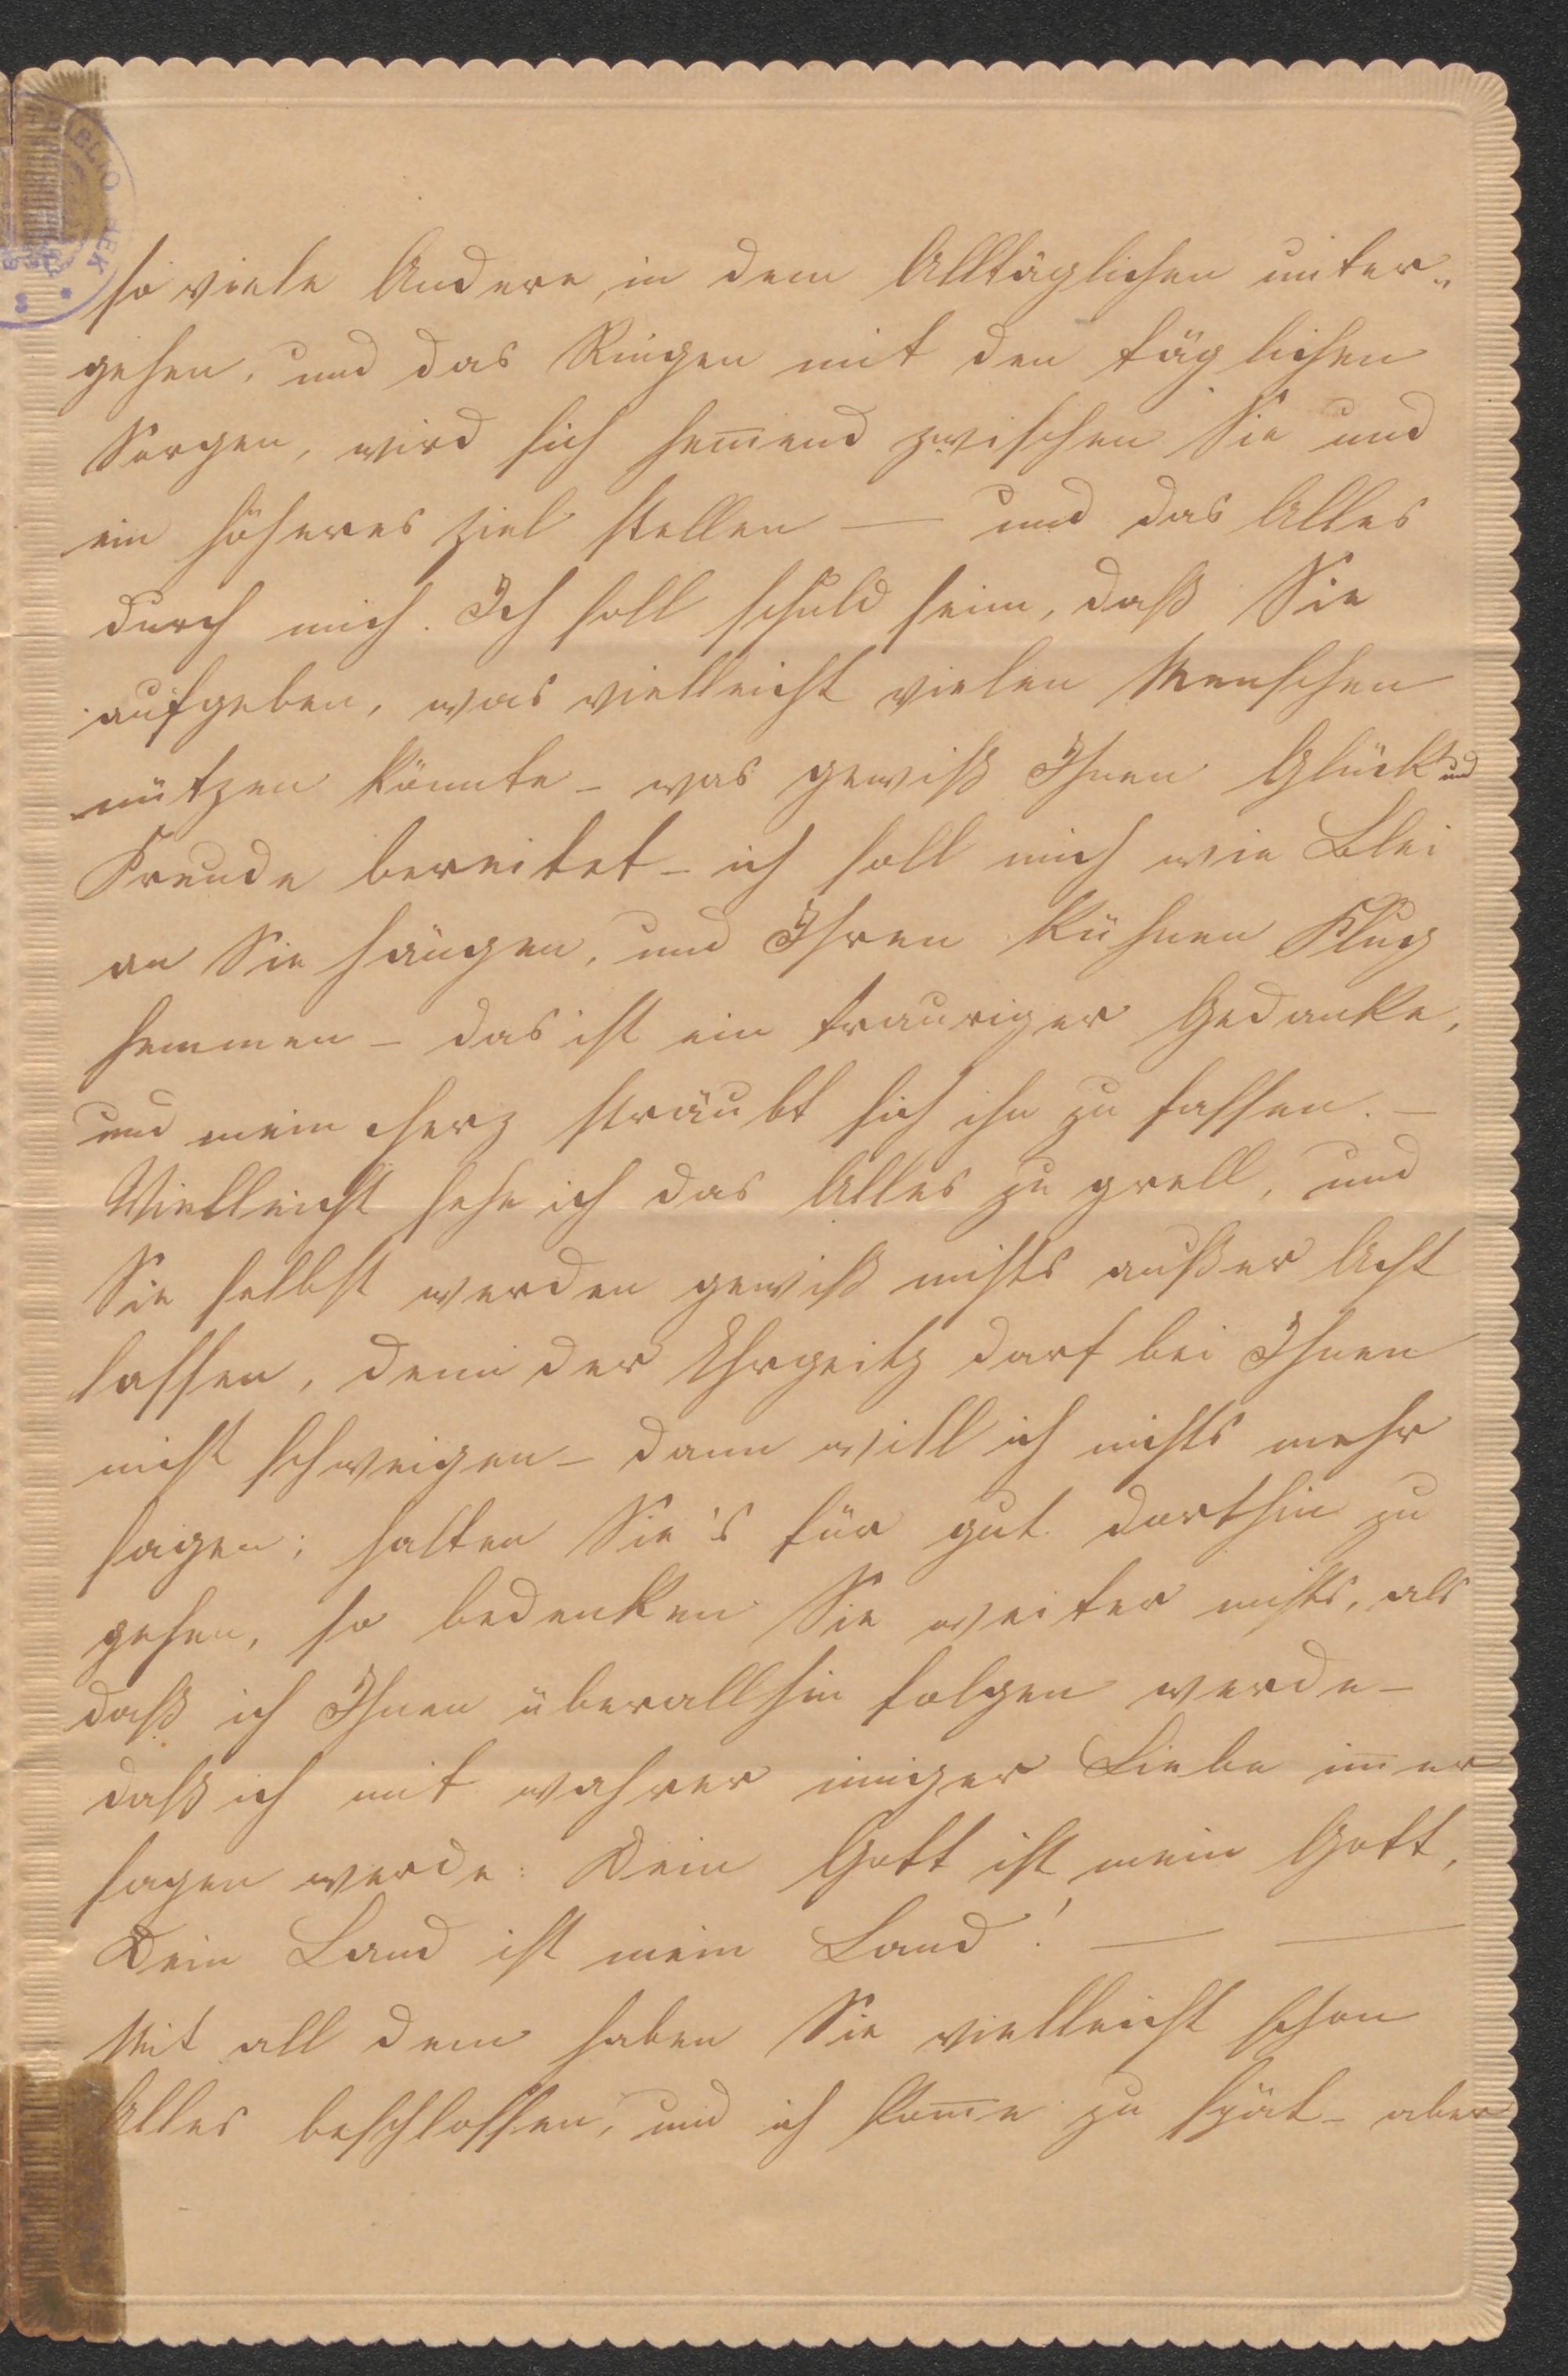 so viele Andere, in dem Alltäglichen unter-
gehen, und das Ringen mit den täglichen
Sorgen, wird sich hem̄end zwischen Sie und
ein höheres Ziel stellen — und das Alles
durch mich. Ich soll schuld sein, daß Sie
aufgeben, was vielleicht vielen Menschen
nützen könnte – was gewiß Ihnen Glück und
Freude bereitet – ich soll mich wie Blei
an Sie hängen, und Ihren kühnen Flug
hemmen – das ist ein trauriger Gedanke,
und mein Herz sträubt sich ihn zu fassen. –
Vielleicht sehe ich das Alles zu grell, und
Sie selbst werden gewiß nichts außer Acht
lassen, denn der Ehrgeitz darf bei Ihnen
nicht schweigen – dann will ich nichts mehr
sagen; halten Sie's für gut dorthin zu
gehen, so bedenken Sie weiter nichts, als
daß ich Ihnen überallhin folgen werde –
daß ich mit wahrer inniger Liebe im̄er
sagen werde: Dein Gott ist mein Gott,
Dein Land ist mein Land! — —
Mit all dem haben Sie vielleicht schon
Alles beschlossen, und ich kom̄e zu spät – aber